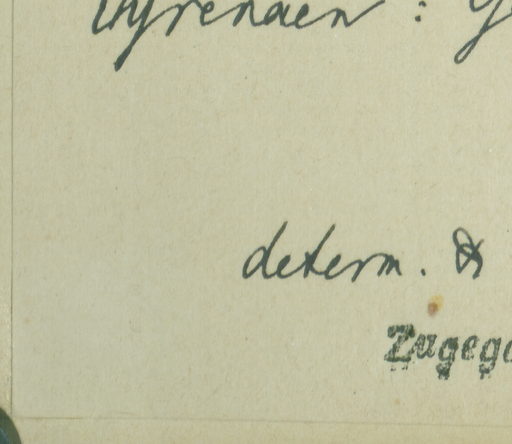 Pyrenäen : G
determ. &
Zugege